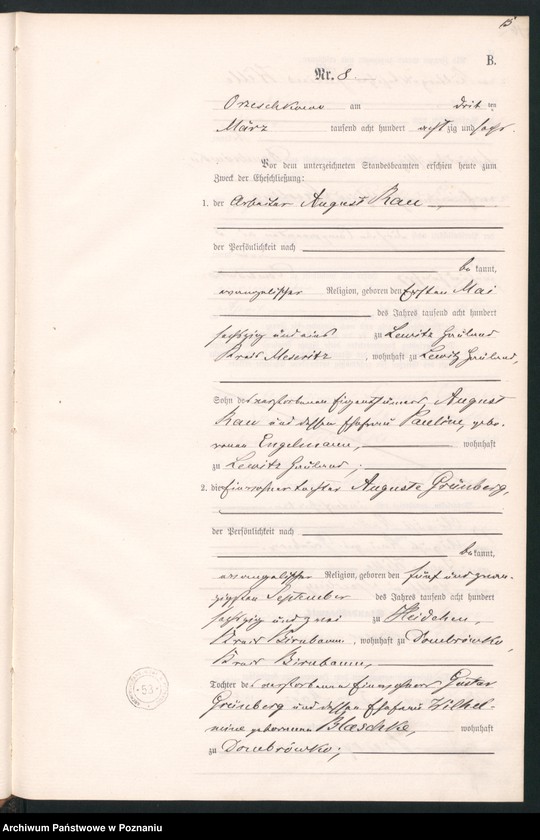 15
B.
Nr. 8
Orzeschkowo am dritten
März tausend acht hundert achtzig und sechs.
Vor dem unterzeichneten Standesbeamten erschien heute zum
Zweck der Eheschließung:
1. der Arbeiter August Rau,
der Persönlichkeit nach
bekannt,
evangelischer Religion, geboren den ersten Mai
des Jahres tausend acht hundert
sechszig und eins zu Lewitz Hauland
Kreis Meseritz, wohnhaft zu Lewitz Hauland,
Sohn des verstorbenen Eigenthümers August
Rau und dessen Ehefrau Pauline, gebo-
renen Engelmann, wohnhaft
zu Lewitz Hauland;
2. die Einwohnertochter Auguste Grünberg,
der Persönlichkeit nach
bekannt,
evangelischer Religion, geboren den fünf und zwan-
zigsten September des Jahres tausend acht hundert
sechszig und zwei zu Heidchen,
Kreis Birnbaum, wohnhaft zu Dombrówko,
Kreis Birnbaum,
Tochter des verstorbenen Einwohners Gustav
Grünberg und dessen Ehefrau Wilhel-
mine geborenen Blaschke, wohnhaft
zu Dombrówko;
53
Archiwum Państwowe w Poznaniu